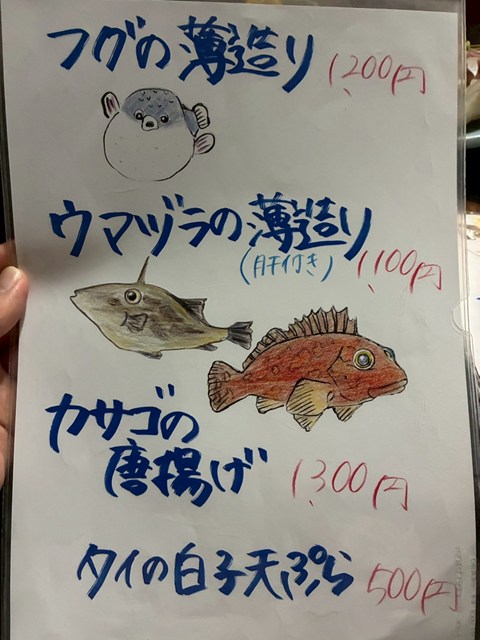 フグの薄造り 1,200円
ウマヅラの薄造り
(肝付き) 1,100円
カサゴの
唐揚げ 1,300円
タイの白子天ぷら 500円